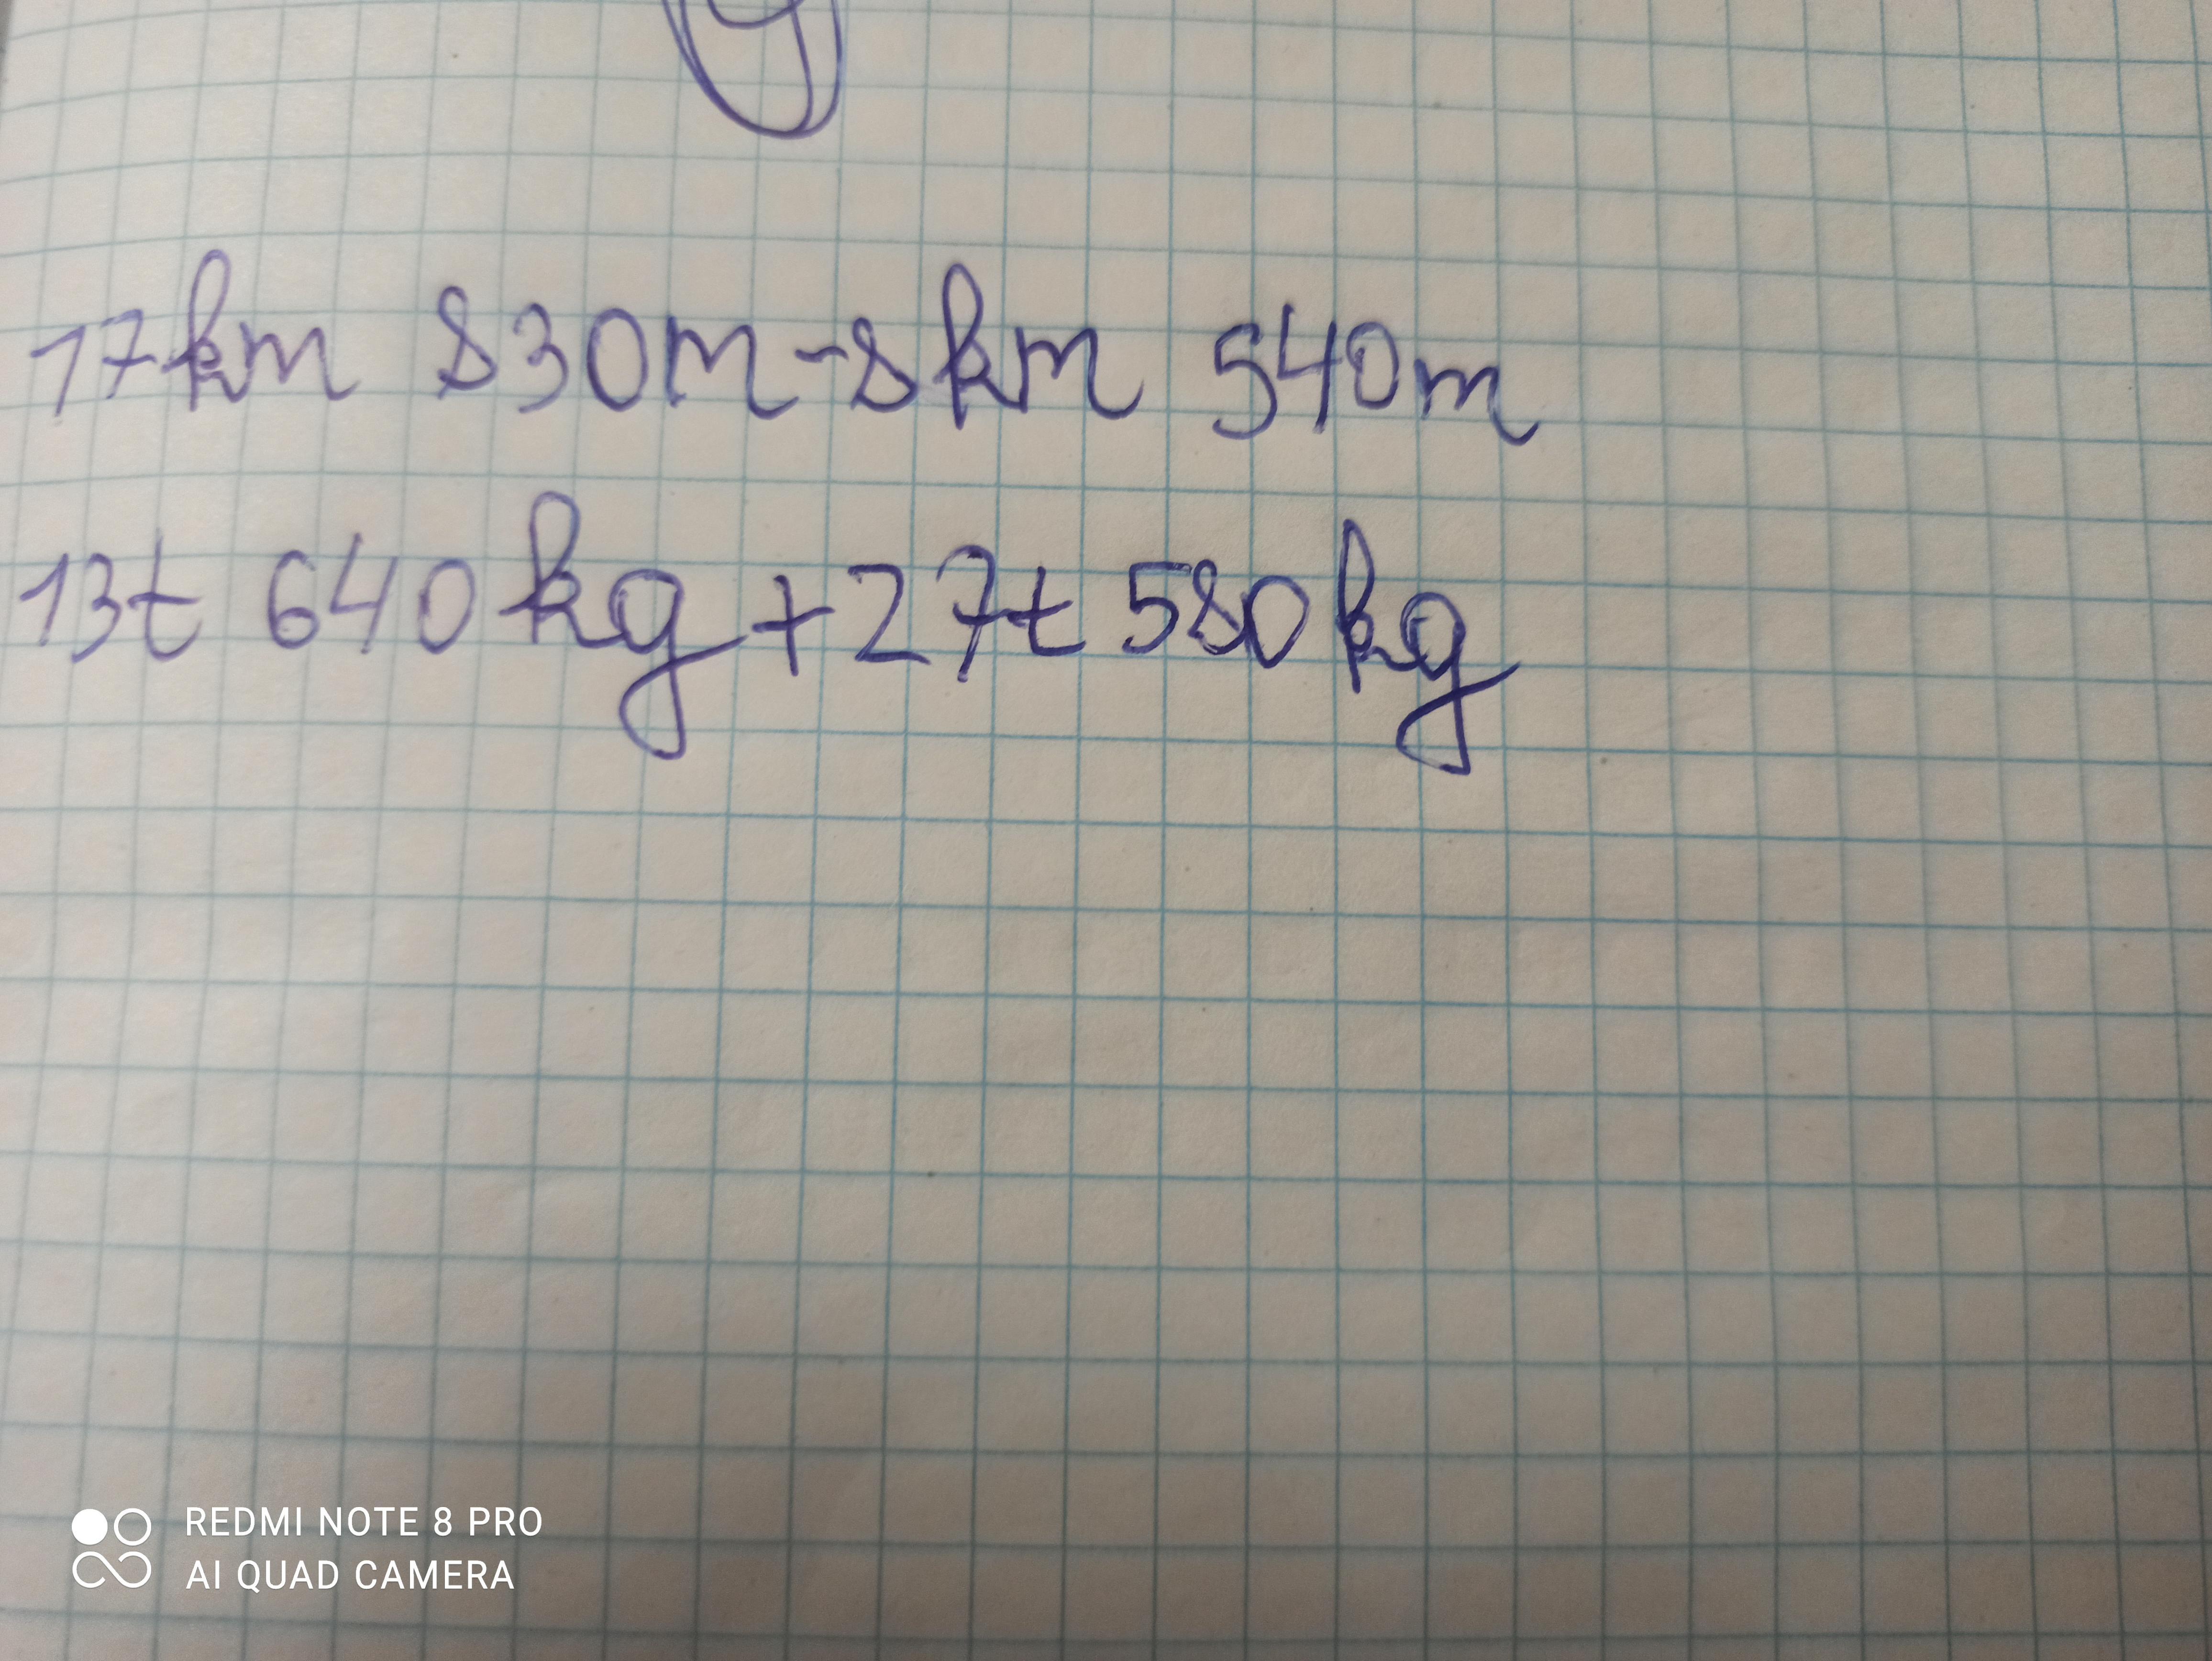 17km 830m-8km 540m
13t 640kg+27t 580kg
REDMI NOTE 8 PRO
AI QUAD CAMERA